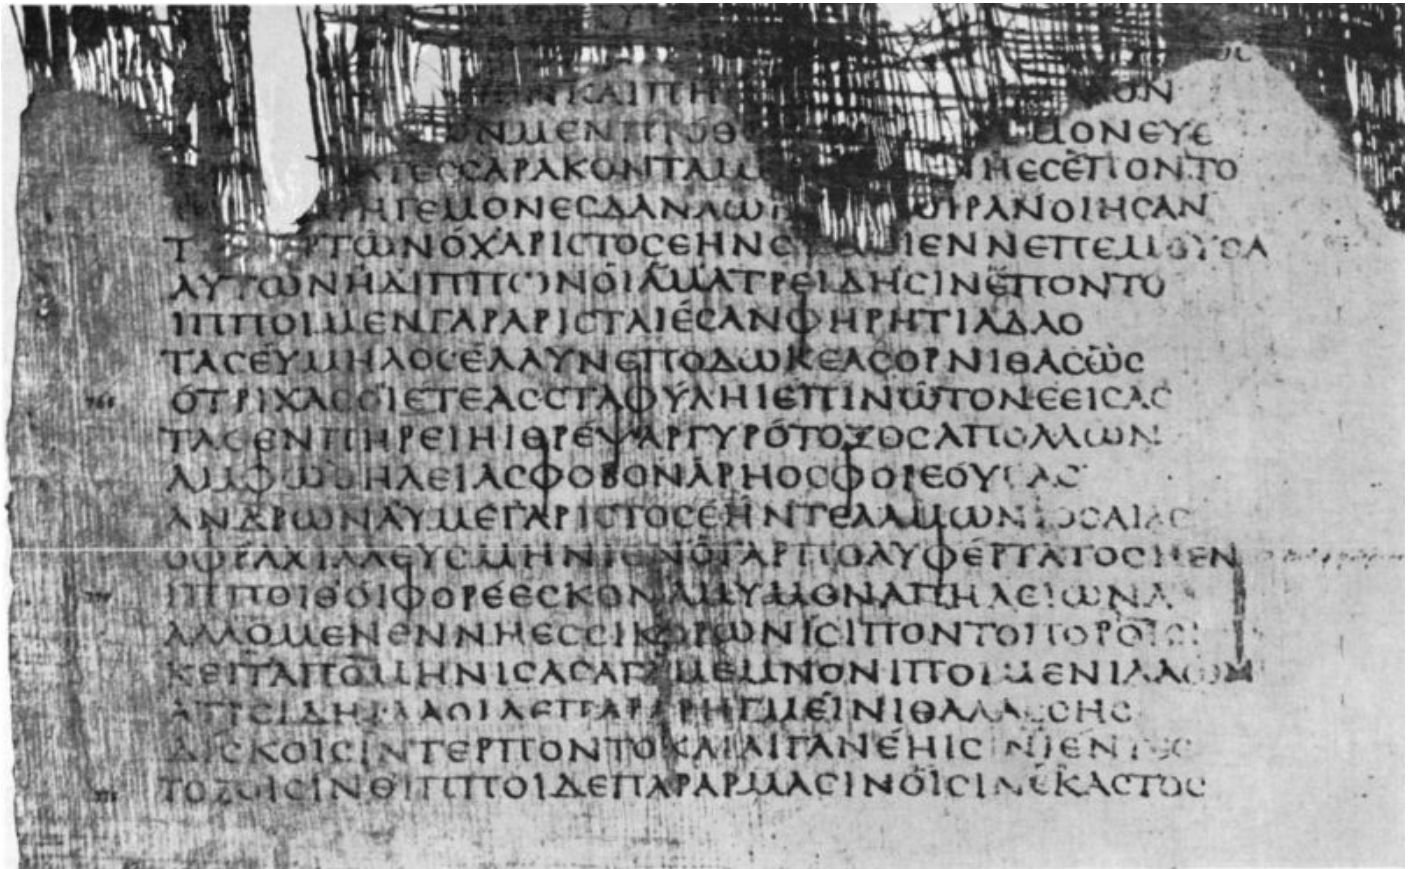 ΝΚΑΙΠΗ ΛΟΝ
ΩΝΜΕΝΠΡΟΘ ΜΟΝΕΥΕ
ΑΤΕϹϹΑΡΑΚΟΝΤΑΜ ΝΗΕϹΕΠΟΝΤΟ
ΗΓΕΜΟΝΕϹΔΑΝΑΩΝ ΟΙΡΑΝΟΙΗϹΑΝ
Τ ΑΡΤΩΝΟΧΑΡΙϹΤΟϹΕΗΝϹ ΜΟΙΕΝΝΕΠΕΜΟΥϹΑ
ΑΥΤΩΝΗΔΙΠΠΩΝΟΙΑΜΑΤΡΕΙΔΗϹΙΝΕΠΟΝΤΟ
ΙΠΠΟΙΜΕΝΓΑΡΑΡΙϹΤΑΙΕϹΑΝΦΗΡΗΤΙΑΔΑΟ
ΤΑϹΕΥΜΗΛΟϹΕΛΑΥΝΕΠΟΔΩΚΕΑϹΟΡΝΙΘΑϹΩϹ
ΟΤΡΙΧΑϹΟΙΕΤΕΑϹϹΤΑΦΥΛΗΙΕΠΙΝΩΤΟΝΕΕΙϹΑϹ
ΤΑϹΕΝΠΗΡΕΙΗΙΘΡΕΨΑΡΓΥΡΟΤΟΞΟϹΑΠΟΛΛΩΝ
ΑΜΦΩΘΗΛΕΙΑϹΦΟΒΟΝΑΡΗΟϹΦΟΡΕΟΥϹΑϹ
ΑΝΔΡΩΝΑΥΜΕΓΑΡΙϹΤΟϹΕΗΝΤΕΛΑΜΩΝΙΟϹΑΙΑϹ
ΟΦΡΑΧΙΛΛΕΥϹΜΗΝΙΕΝΟΓΑΡΠΟΛΥΦΕΡΤΑΤΟϹΗΕΝ
ΙΠΠΟΙΘΟΙΦΟΡΕΕϹΚΟΝΑΜΥΜΟΝΑΠΗΛΕΙΩΝΑ
ΑΛΛΟΜΕΝΕΝΝΗΕϹϹΙΚΟΡΩΝΙϹΙΠΟΝΤΟΠΟΡΟΙϹΙ
ΚΕΙΤΑΠΟΜΗΝΙϹΑϹΑΓΑΜΕΜΝΟΝΙΠΟΙΜΕΝΙΛΑΩΝ
ΑΤΡΕΙΔΗΙΛΑΟΙΔΕΠΑΡΑΡΗΓΜΕΙΝΙΘΑΛΑϹϹΗϹ
ΔΙϹΚΟΙϹΙΝΤΕΡΠΟΝΤΟΚΑΙΑΙΓΑΝΕΗΙϹΙΝΙΕΝΤΕϹ
ΤΟΞΟΙϹΙΝΘΙΠΠΟΙΔΕΠΑΡΑΡΜΑϹΙΝΟΙϹΙΝΕΚΑϹΤΟϹ